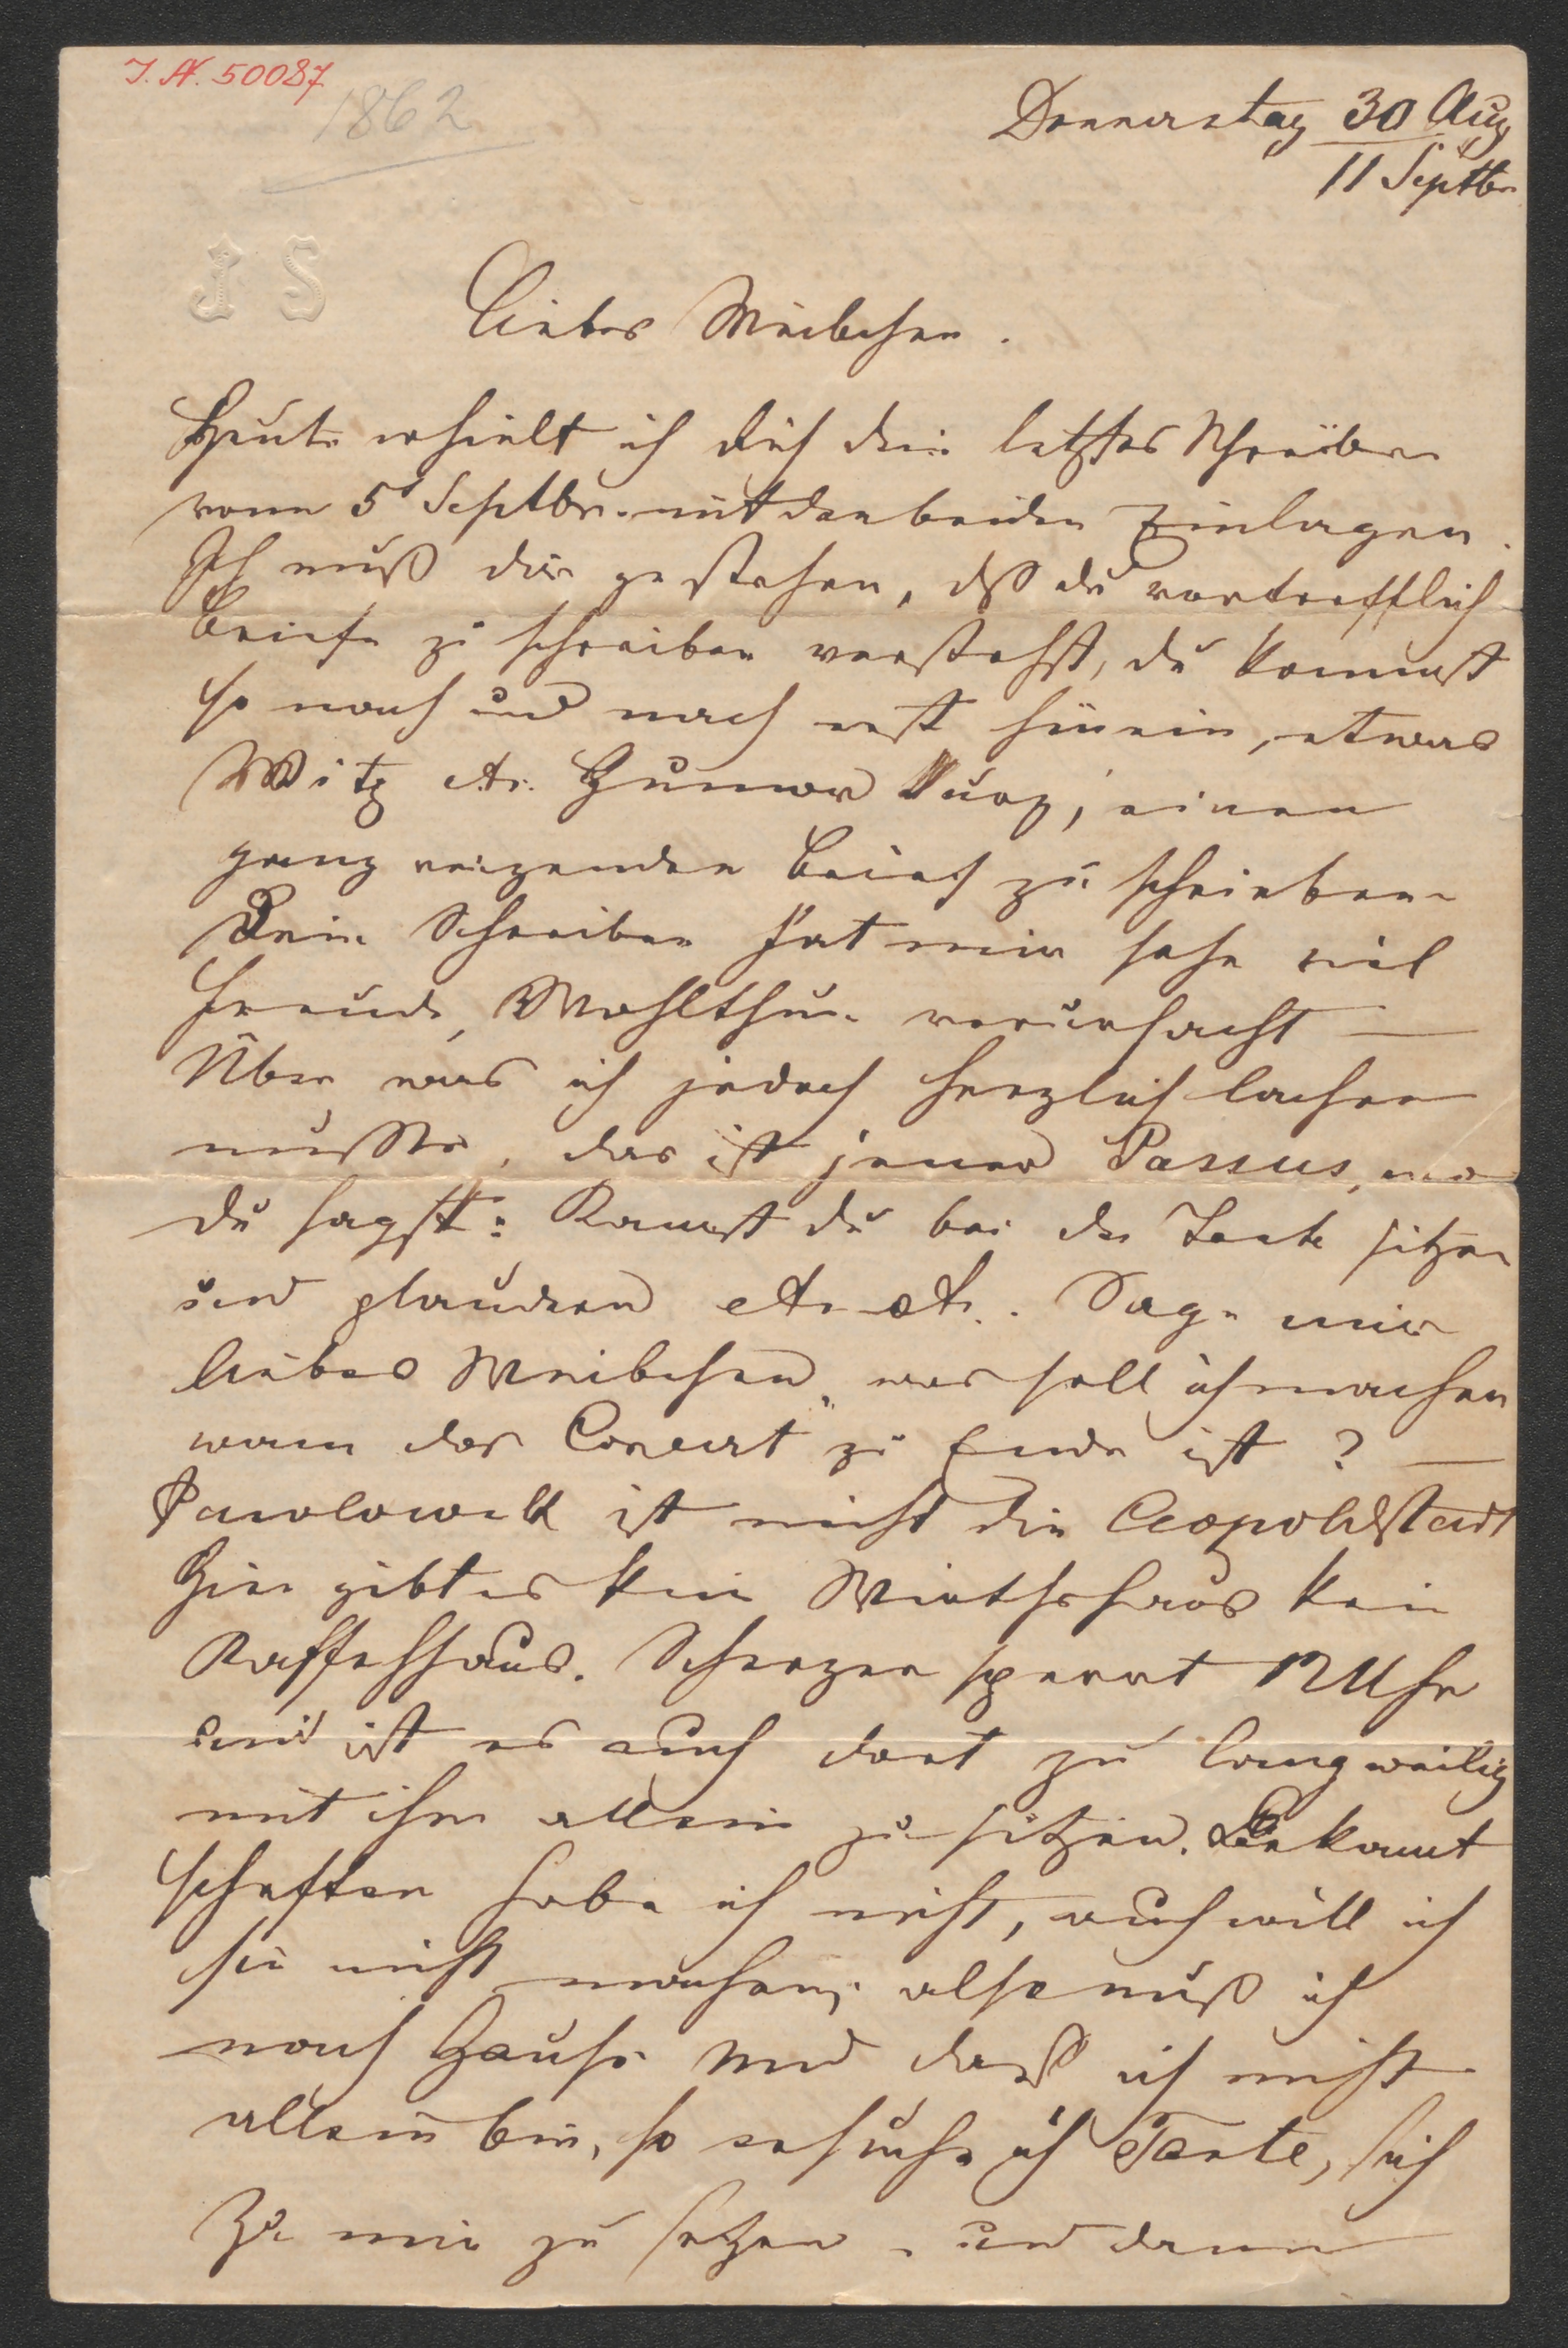 I. N. 50087
1862
Donnerstag 30 Aug
11 Septbr
J S
Liebes Weibchen.
Heute erhielt ich dein letztes Schreiben
vom 5t Septbr. mit den beiden Einlagen.
Ich muß dir gestehen, dß du vortrefflich
Briefe zu schreiben verstehst, du kommst
so nach und nach erst hinein, etwas
Witz etc. Humor kurz, einen
ganz reizenden Brief zu schreiben
Dein Schreiben hat mir sehr viel
Freude, Wohlthun verursacht —
Über was ich jedoch herzlich lachen
mußte, das ist jener Passus, wo
du sagst: Kannst du bei der Tante sitzen
und plaudern etc etc. Sage mir
liebes Weibchen, was soll ich machen
wann das Concert zu Ende ist? —
Pawlowsk ist nicht die Leopoldstadt
Hier gibt es kein Wirthshaus kein
Kaffehhaus. Scherzer sperrt 12 Uhr
und ist es auch dort zu langweilig
mit ihm allein zu sitzen. Bekannt
schaften habe ich nicht, auch will ich
sie nicht machen; also muß ich
nach Hause und daß ich nicht
allein bin, so ersuche ich Tante, sich
zu mir zu setzen – und dann